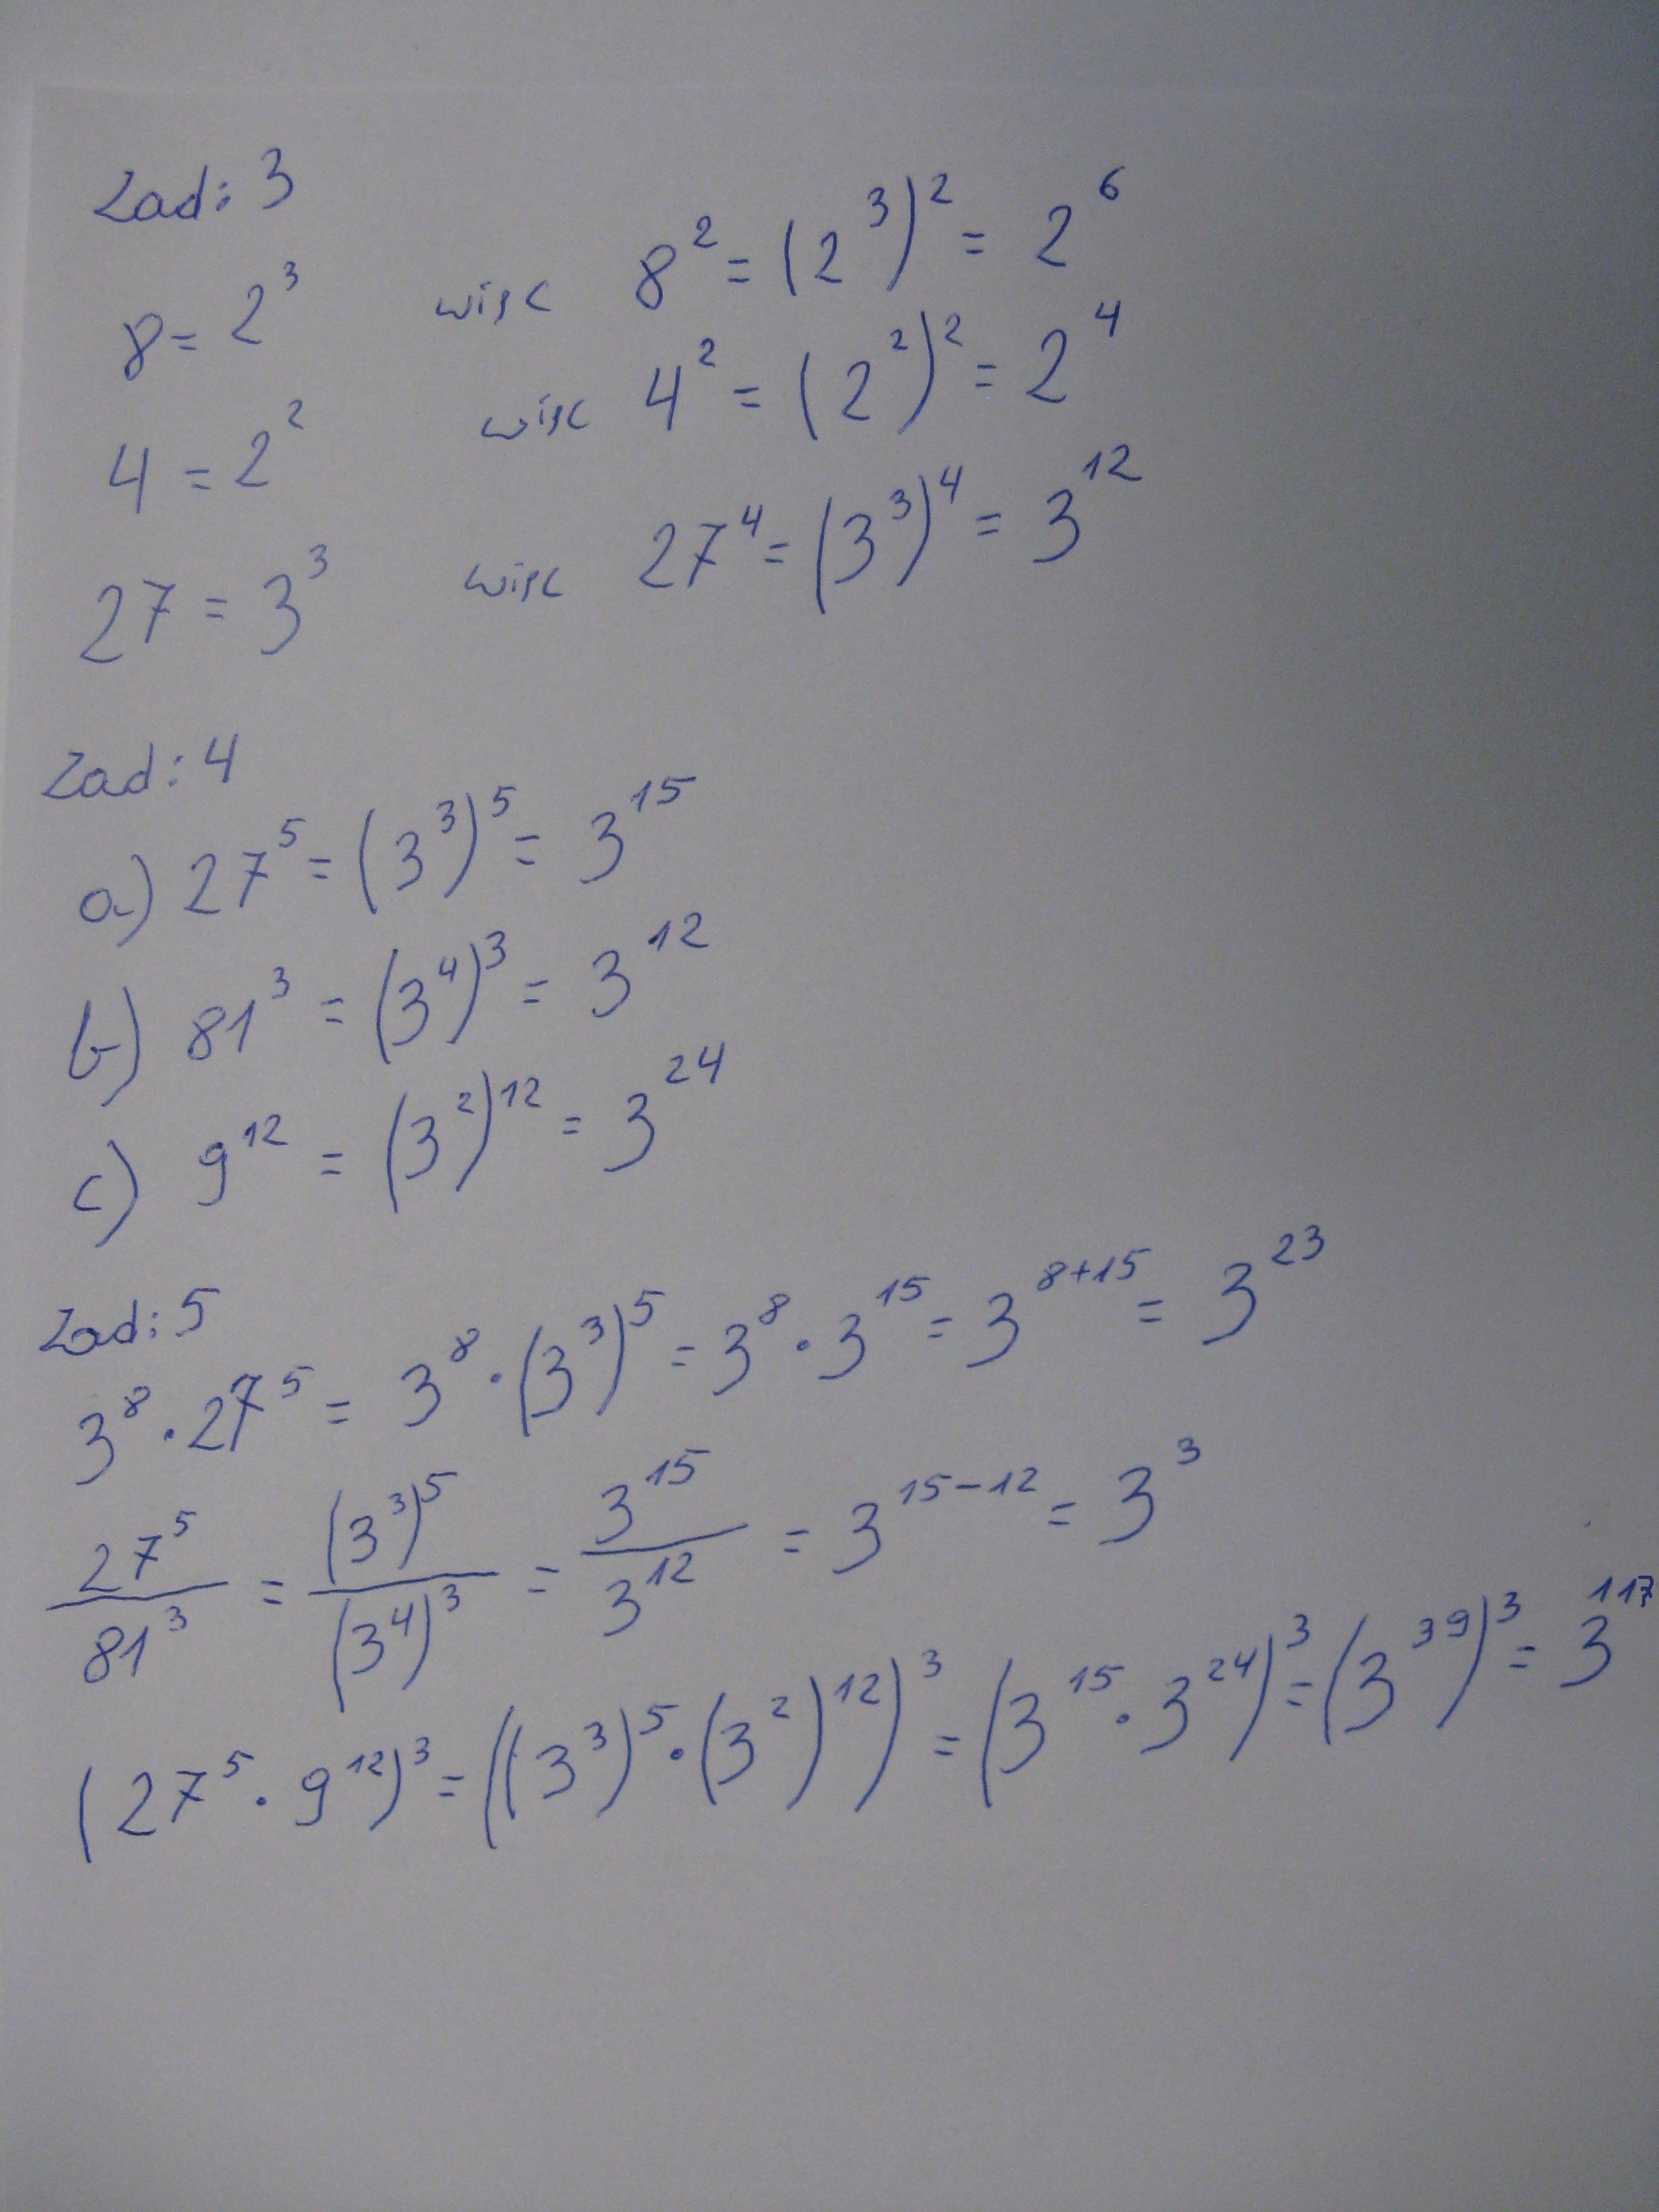 Zad: 3
8 = 2³ więc 8² = (2³)² = 2⁶
4 = 2² więc 4² = (2²)² = 2⁴
27 = 3³ więc 27⁴ = (3³)⁴ = 3¹²
Zad: 4
a) 27⁵ = (3³)⁵ = 3¹⁵
b) 81³ = (3⁴)³ = 3¹²
c) 9¹² = (3²)¹² = 3²⁴
Zad: 5
3⁸ · 27⁵ = 3⁸ · (3³)⁵ = 3⁸ · 3¹⁵ = 3⁸⁺¹⁵ = 3²³
27⁵/81³ = (3³)⁵/(3⁴)³ = 3¹⁵/3¹² = 3¹⁵⁻¹² = 3³
(27⁵ · 9¹²)³ = ((3³)⁵ · (3²)¹²)³ = (3¹⁵ · 3²⁴)³ = (3³⁹)³ = 3¹¹⁷